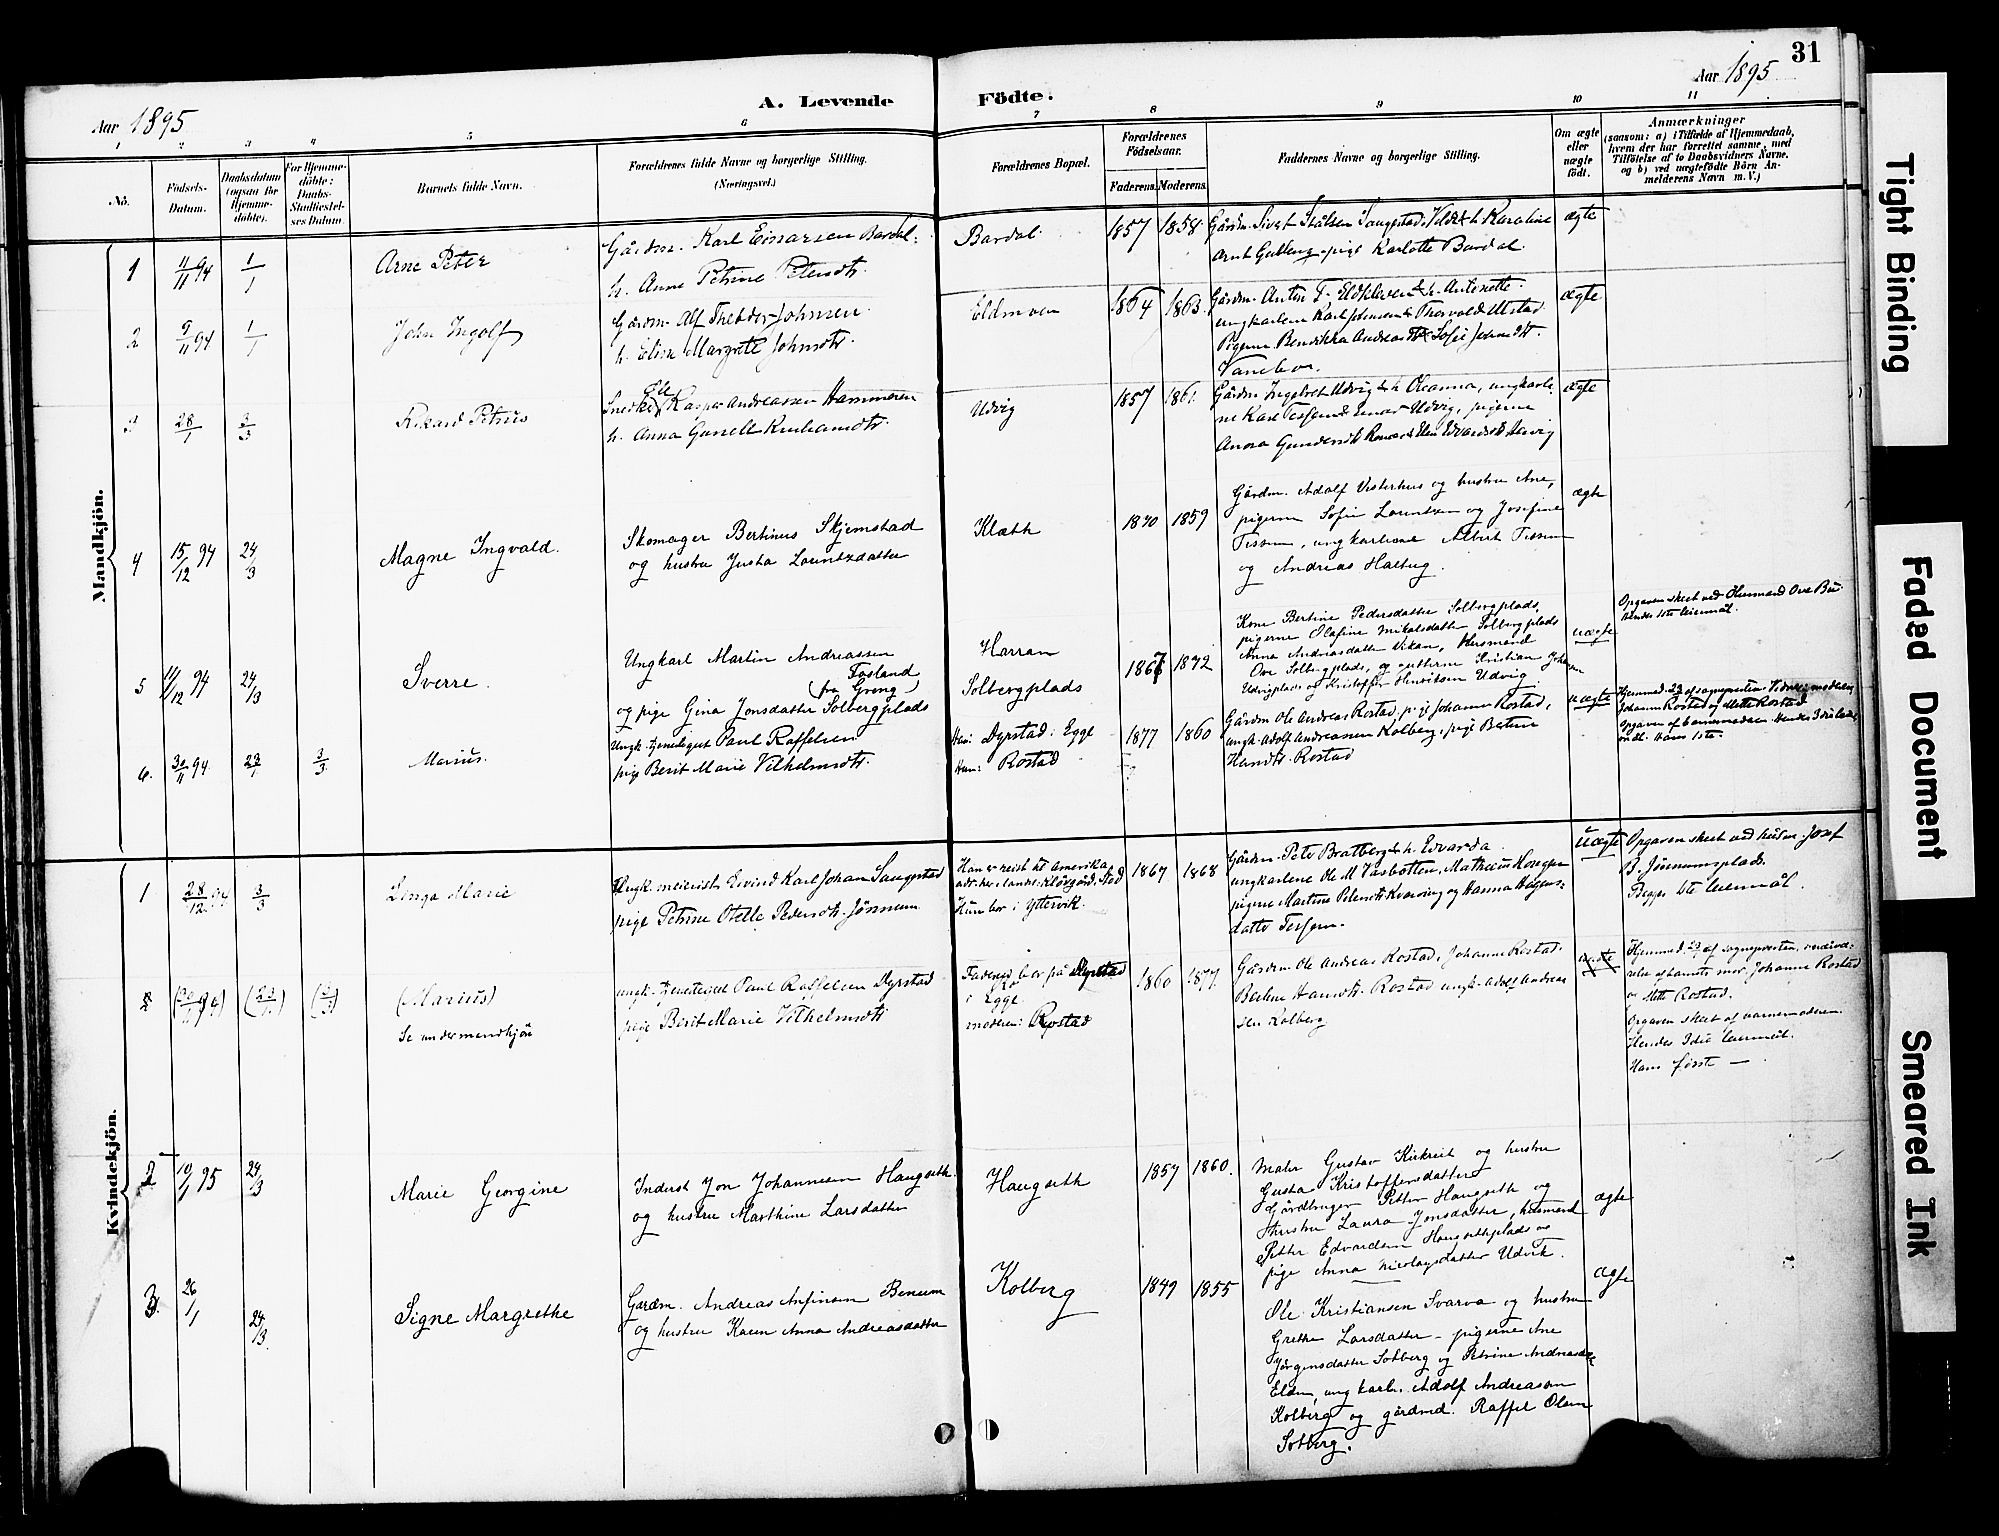 31
Aar 1895
A. Levende Födte.
Aar 1895
1 2 3 4 5 6 7 8 9 10 11
No.
Födsels-
Datum.
Daabsdatum
(ogsaa for
Hjemme-
döbte).
For Hjemme-
döbte:
Daabs-
Stadfæstel-
ses Datum
Barnets fulde Navn.
Forældrenes fulde Navne og borgerlige Stilling.
(Næringsvei.)
Forældrenes Bopæl.
Forældrenes
Födselsaar.
Faderens. Moderens.
Faddernes Navne og borgerlige Stilling.
Om ægte
eller
uægte
födt.
Anmærkninger
(saasom: a) i Tilfælde af Hjemmedaab,
hvem der har forrettet samme, med
Tilföielse af to Daabsvidners Navne,
og b) ved uægtefödte Börn An-
melderens Navn m. V.)
Mandkjön.
1
11/11 94
1/1
Arne Peter
Gårdm. Karl Einarsen Bardal
h. Anne Petrine Petersdtr.
Bardal
1857 1858
Karoline
pige Karlotte Bardal
ægte
2
9/11 94
1/1
John Ingolf
Gårdm. Alf Theodor Johnsen
h. Elin Margrete Johnsdtr.
Eldmoen
1864 1863
Gårdm. Anton T. Eldkleven & h. Antonette
ungkarlene Karl Johnsen & Thorvald Utstad
Pigerne Bendikka & Sofie
ægte
3
28/1
3/3
Rikard Petrus
Snedker Kasper Andreassen Hammeren
h. Anna
Udvig
1857 1861
Gårdm. Udvig & h. Oleanna, ungkarle-
ne Karl & Einar Udvig, pigerne
Anna
ægte
4
15/12 94
24/3
Magne Ingvald.
Skomager Bertinus Skjemstad
og hustru Justa Lorentzdatter
Klæth
1870 1859
Gårdm. Adolf Vesterhus og hustru Ane,
pigerne Sofie Lorentzen og Josefine
Tessem, ungkarlene Albert Tessem
og Andreas Haltug.
ægte
5
11/12 94
24/3
Sverre.
Ungkarl Martin Andreassen
Fosland
(fra Grong)
og pige Gina Jonsdatter Solbergplads
Harran
Solbergplads
1867 1872
Kone Bertine Pedersdatter Solbergplads,
pigerne Olafine Mikalsdatter Solbergplads
Anna Andreasdatter Vikan, Husmand
Ove Solbergplads, og gutterne Kristian Johan
Udvigplads og Kristoffer Henriksen Udvig
uægte
Opgaven skeet ved Husmand Ove
1ste leiermål.
6.
30/11 94
23/1
3/3
Marius.
Ungk. tjenestegut Paul Raffelsen
pige Berit Marie Vilhelmsdtr.
Dyrstad i Egge
Rostad
1877 1860
Gårdm Ole Andreas Rostad, pige Johanna Rostad,
ungk. Adolf Andreassen Kolberg, pige Betine
Hansdtr. Rostad
uægte
Johanna Rostad og Mette Rostad
Kvindekjön.
1
28/12 94
3/3
Inga Marie
Ungk. meierist Eivind Karl Johan Saugstad
pige Petrine Otelie Pedersdtr. Jönnum
Han er reist til Amerika
Hun bor i Yttervik.
1867 1868
Gårdm. Peter Bratberg & h. Edvarda
ungkarlene Ole M Vasbotten,
pigerne Martine Petersdtr Kvarving og Hanna Hågens-
datter Tessem.
uægte
Opgaven skeet ved husm. Josef
B. Jönnumsplads
Begges 1ste leiermål.
2
(30/11 94)
(23/1)
(3/3)
(Marius)
Se under mandkjön
ungk. tjenestegut Paul Raffelsen Dyrstad
pige Berit Marie Vilhelmsdtr
Faderen bor på Dyrstad
i Egge
moderen: Rostad
1860 1877
Gårdm Ole Andreas Rostad, Johanna Rostad
Betine Hansdtr. Rostad ungk. Adolf Andreas-
sen Kolberg
Hjemmed. 23/1 af sognepresten,
mor, Johanna Rostad
og Mette Rostad.
Opgaven skeet af barnemoderen.
Hendes 3die leiermål.
Hans förste —
2
10/1 95
24/3
Marie Georgine
Inderst Jon Johannesen Haugseth
og hustru Marthine Larsdatter
Haugseth
1857 1860.
Maler Gustav Kirkreit og hustru
Gusta Kristoffersdatter
Gårdbruger Petter Haugseth og
hustru Laura Jonsdatter, husmand
Petter Edvardsen Haugsethplads og
pige Anna Nicolaysdatter Udvik.
ægte
3.
26/1
24/3.
Signe Margrethe
Gardm. Andreas Anfinsen Benum
og hustru Karen Anna Andreasdatter
Kolberg
1849 1855
Ole Kristiansen Svarva og hustru
Grethe Larsdatter – pigerne Ane
Jörgensdatter Solberg og Petrine Andreasdtr
Elden, ungkarl. Adolf Andreassen
Kolberg og gårdmd. Raffel Olsen
Solberg.
ægte
Tight Binding
Faded Document
Smeared Ink